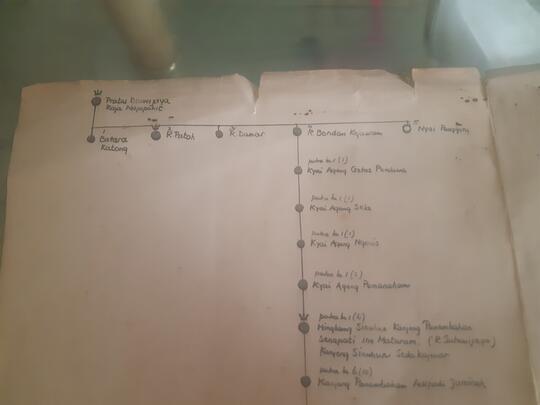 Prabu Brawijaya
Raja Majapahit
Batara
Katong
R. Patah
R. Damar
R. Bondan Kejawan
Nyai
putra ke 1 (1)
Kyai Ageng Getas Pendawa
putra ke 1 (1)
Kyai Ageng Sela
putra ke 1 (1)
Kyai Ageng Ngenis
putra ke 1 (1)
Kyai Ageng Pemanahan
putra ke 1 (1)
Hingkang Sinuhun Kanjeng Panembahan
Senapati Ing Mataram. (R. Sutawijaya)
Kanjeng Sinuhun Seda kajenar
putra ke (10)
Kanjeng Panembahan